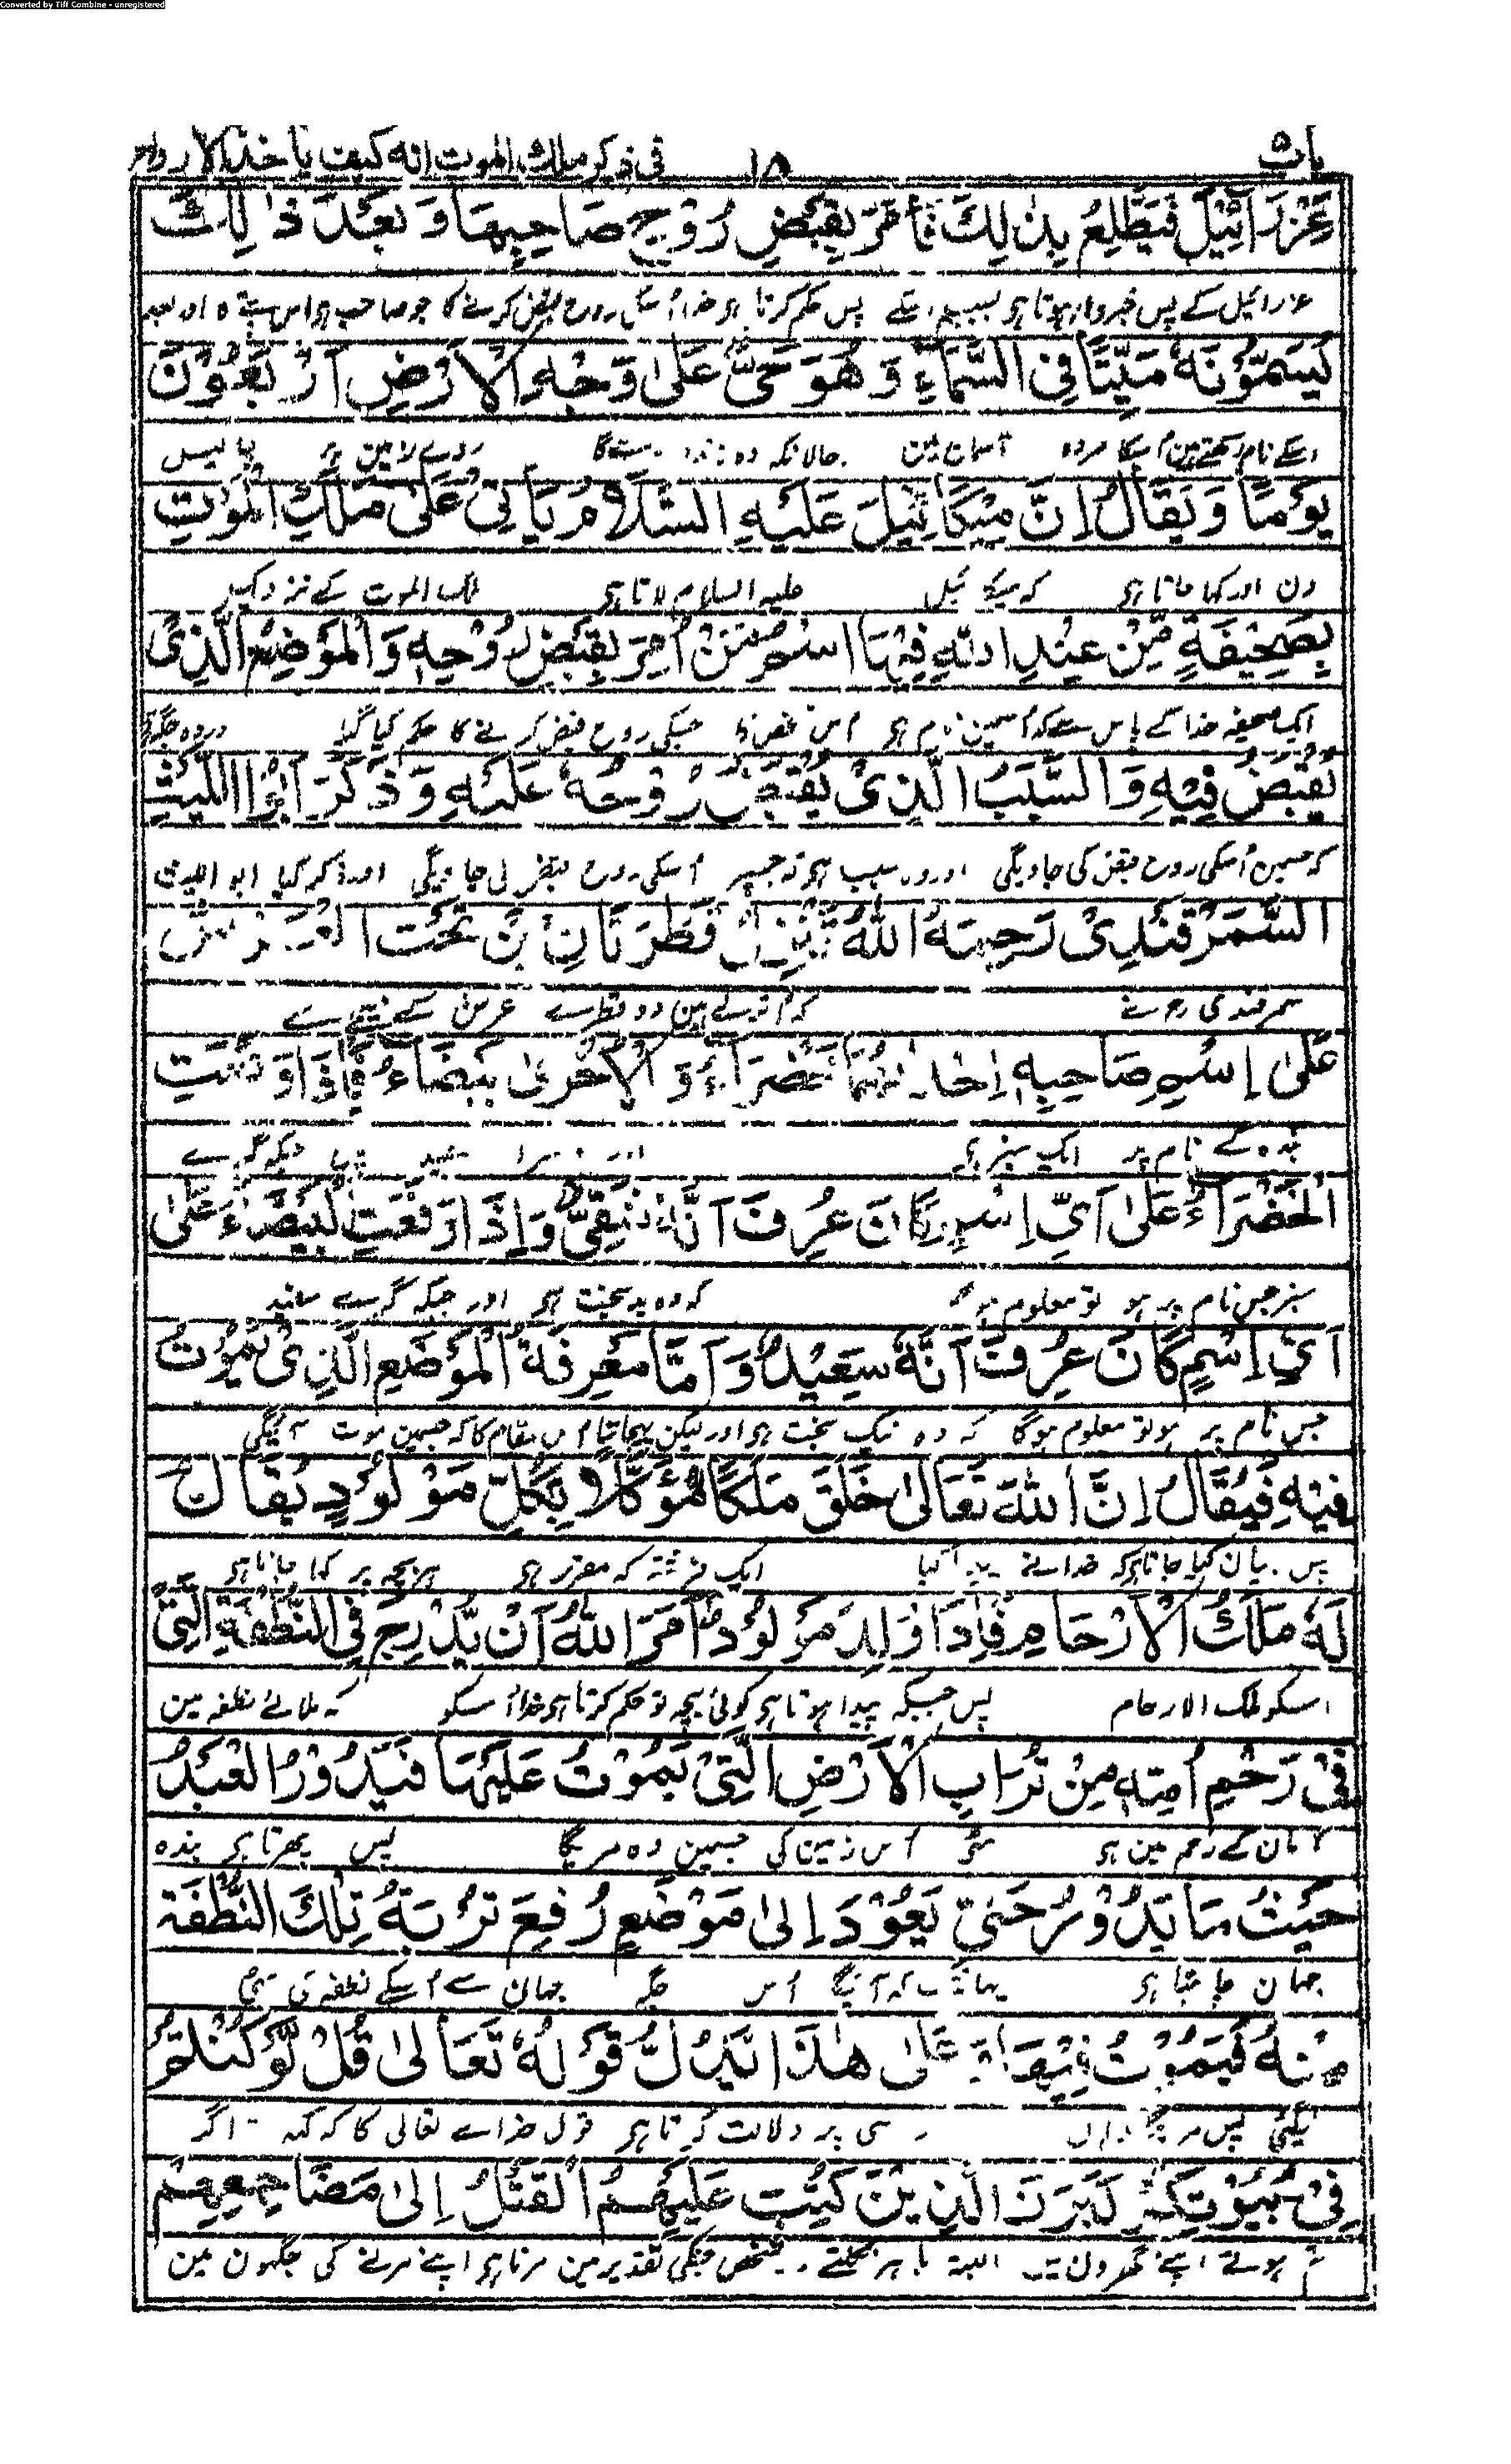 Converted by Tiff Combine - unregistered
باب ۵ ۱۵ فی ذکر ملك الموت انه کیف یأخذ الارواح
عَزْرَائِیْلَ فَیَطَّلِعُ بِذٰلِكَ فَأَمَرَ بِقَبْضِ رُوْحِ صَاحِبِهَا وَبَعْدَ ذٰلِكَ
عزرائیل کے پس خبردار ہوتا ہی بسبب اسکے پس حکم کرتا ہی خدا اُسکی روح قبض کرنے کا جو صاحب ہی اس پتے کا اور بعد
یُسَمُّوْنَهٗ مَیِّتًا فِی السَّمَآءِ وَهُوَ حَیٌّ عَلٰی وَجْهِ الْاَرْضِ اَرْبَعُوْنَ
اسکے نام رکھتے ہین اُسکا مردہ آسمان مین حالانکہ وہ زندہ روے زمین پر چالیس
یَوْمًا وَیُقَالُ اِنَّ مِیْکَائِیْلَ عَلَیْهِ السَّلَامُ یَأْتِیْ عَلٰی مَلَكِ الْمَوْتِ
دن اور کہا جاتا ہی کہ میکائیل علیہ السلام لاتا ہی ملک الموت کے نزدیک
بِصَحِیْفَةٍ مِّنْ عِنْدِ اللّٰهِ فِیْهَا اسْمُ مَنْ اُمِرَ بِقَبْضِ رُوْحِهٖ وَالْمَوْضِعُ الَّذِیْ
ایک صحیفہ خدا کے پاس سے کہ اُسمین نام ہی اُس شخص کا جسکی روح قبض کرنے کا حکم کیا گیا اور وہ جگہ
یُقْبَضُ فِیْهِ وَالسَّبَبُ الَّذِیْ یُقْبَضُ رُوْحُهٗ عَلَیْهِ وَذَکَرَ اَبُو اللَّیْثِ
کہ جسمین اُسکی روح قبض کی جاویگی اور وہ سبب ہی کہ جسپر اُسکی روح قبض کی جاویگی اور ذکر کیا ابو اللیث
السَّمَرْقَنْدِیْ رَحِمَهُ اللّٰهُ تَنْزِلُ قَطْرَتَانِ مِنْ تَحْتِ الْعَرْشِ
سمرقندی رح نے کہ اُترتے ہین دو قطرے عرش کے نیچے سے
عَلٰی اِسْمِ صَاحِبِهٖ اِحْدٰىهُمَا خَضْرَآءُ وَالْاُخْرٰی بَیْضَآءُ فَاِذَا وَقَعَتِ
بندہ کے نام پر ایک سبز ہی اور دوسرا سفید پس جبکہ گرے
الْخَضْرَآءُ عَلٰی اَیِّ اِسْمٍ کَانَ عُرِفَ اَنَّهٗ شَقِیٌّ وَاِذَا وَقَعَتِ الْبَیْضَآءُ عَلٰی
سبز جس نام پر ہو تو معلوم ہوگا کہ وہ بدبخت ہی اور جبکہ گرے سفید
اَیِّ اِسْمٍ کَانَ عُرِفَ اَنَّهٗ سَعِیْدٌ وَاَمَّا مَعْرِفَةُ الْمَوْضِعِ الَّذِیْ یَمُوْتُ
جس نام پر ہو تو معلوم ہوگا کہ وہ نیک بخت ہی اور لیکن پہچاننا اُس مقام کا کہ جسمین موت آئیگی
فِیْهِ فَیُقَالُ اِنَّ اللّٰهَ تَعَالٰی خَلَقَ مَلَکًا مُؤَکَّلًا بِکُلِّ مَوْلُوْدٍ یُقَالُ
پس بیان کیا جاتا ہی کہ خدا نے پیدا کیا ایک فرشتہ کہ مقرر ہی ہر بچہ پر کہا جاتا ہی
لَهٗ مَلَكُ الْاَرْحَامِ فَاِذَا وُلِدَ مَوْلُوْدٌ اَمَرَ اللّٰهُ اَنْ یُّدْرِجَ فِی النُّطْفَةِ الَّتِیْ
اسکو ملک الارحام پس جبکہ پیدا ہوتا ہی کوئی بچہ تو حکم کرتا ہی خدا اُسکو کہ ملائے نطفہ مین
فِیْ رَحْمِ اُمِّهٖ مِنْ تُرَابِ الْاَرْضِ الَّتِیْ یَمُوْتُ عَلَیْهَا فَیَدُوْرُ الْعَبْدُ
مان کے رحم مین ہی اُس زمین کی جسمین وہ مریگا پس پھرتا ہی بندہ
حَیْثُ مَا یَدُوْرُ حَتّٰی یَعُوْدَ اِلٰی مَوْضِعٍ رُفِعَ تُرْبَةُ تِلْكَ النُّطْفَة
جہان چاہتا ہی یہانتک کہ آئیگا اُس جگہ جہان سے اُسکے نطفہ کی
مِنْهُ فَیَمُوْتُ فِیْهَا عَلٰی هٰذَا یَدُلُّ قَوْلُهٗ تَعَالٰی قُلْ لَّوْ کُنْتُمْ
پس مریگا وہان اسی پر دلالت کرتا ہی قول خداے تعالی کا کہ کہہ اگر
فِیْ بُیُوْتِکُمْ لَبَرَزَ الَّذِیْنَ کُتِبَ عَلَیْهِمُ الْقَتْلُ اِلٰی مَضَاجِعِهِمْ
تم ہوتے اپنے گھرون مین البتہ باہر نکلتے وہ شخص جنکی تقدیر مین مرنا ہی اپنے مرنے کی جگہون مین